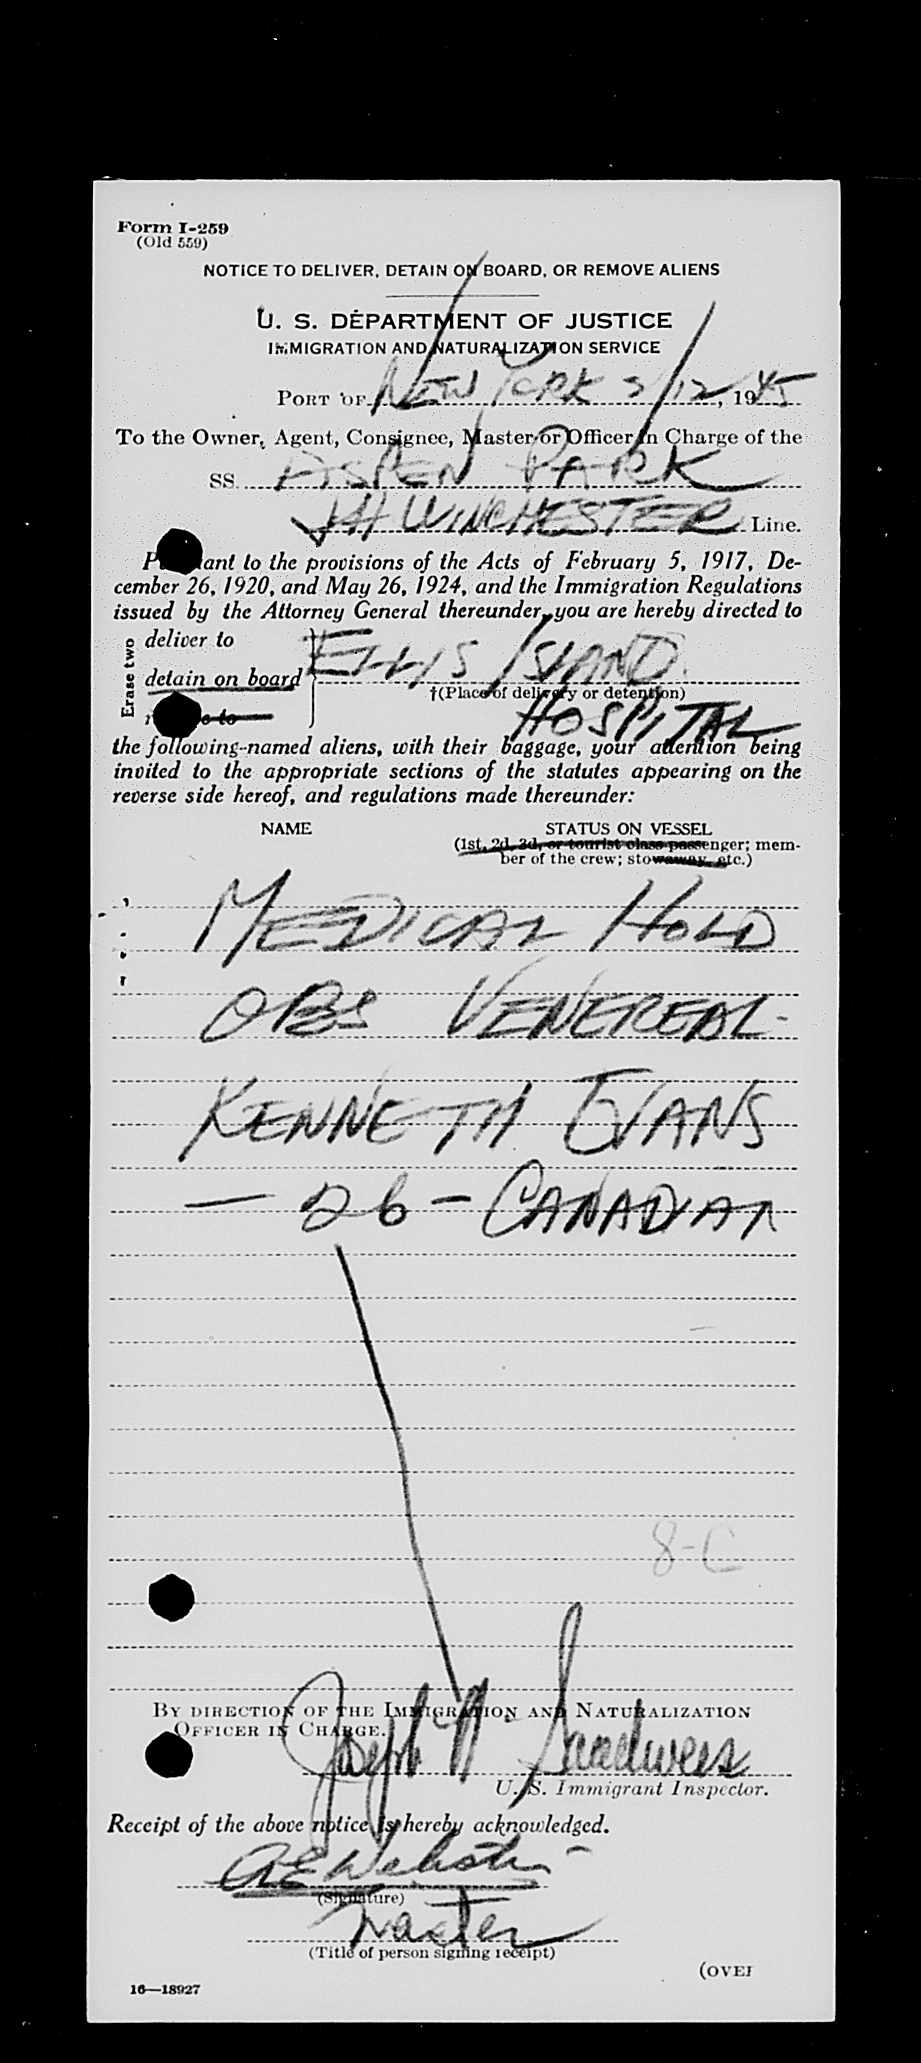 Form I-259
(Old 559)
NOTICE TO DELIVER, DETAIN ON BOARD, OR REMOVE ALIENS
U. S. DEPARTMENT OF JUSTICE
IMMIGRATION AND NATURALIZATION SERVICE
PORT OF NEW YORK 2/12, 1945
To the Owner, Agent, Consignee, Master or Officer in Charge of the
SS. ASPEN PARK
JH WINCHESTER Line.
ant to the provisions of the Acts of February 5, 1917, De-
cember 26, 1920, and May 26, 1924, and the Immigration Regulations
issued by the Attorney General thereunder, you are hereby directed to
Erase two
deliver to
detain on board
to
ELLIS ISLAND
†(Place of delivery or detention)
HOSPITAL
the following-named aliens, with their baggage, your attention being
invited to the appropriate sections of the statutes appearing on the
reverse side hereof, and regulations made thereunder:
NAME STATUS ON VESSEL
(1st, 2d, 3d, or tourist class passenger; mem-
ber of the crew; stowaway, etc.)
MEDICAL HOLD
OBS VENEREAL-
KENNETH EVANS
— 26 — CANADIAN
8-C
BY DIRECTION OF THE IMMIGRATION AND NATURALIZATION
OFFICER IN CHARGE.
Joseph
U. S. Immigrant Inspector.
Receipt of the above notice is hereby acknowledged.
AE Webster
(Signature)
Master
(Title of person signing receipt)
(OVER
16—18927